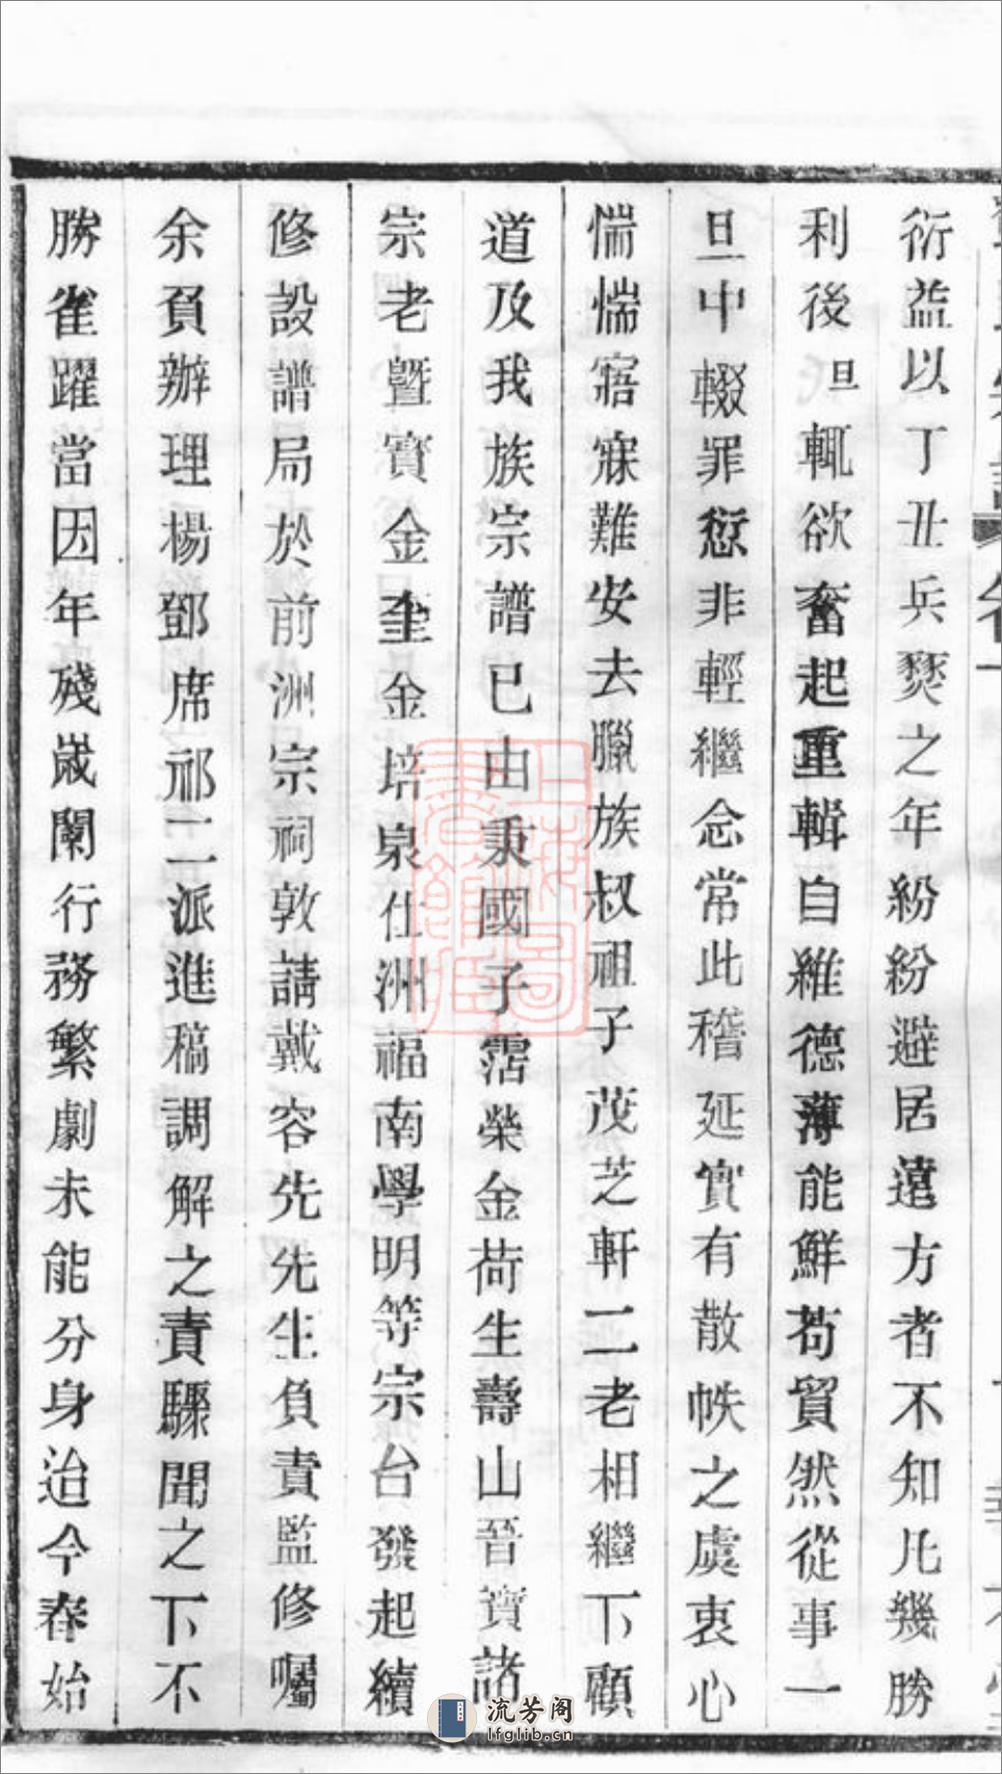 衍益以丁丑兵燹之年紛紛避居遠方者不知凡幾勝
利後旦輒欲奮起重輯自維德薄能鮮苟貿然從事一
旦中輟罪愆非輕繼念常此稽延實有散帙之虞衷心
惴惴寤寐難安去臘族叔祖子茂芝軒二老相繼下顧
道及我族宗譜已由秉國子霑榮金荷生壽山晉寶諸
宗老曁寳金奎金培泉仕洲福南學明等宗台發起續
修設譜局於前洲宗祠敦請戴容先先生負責監修囑
余負辦理楊鄧席祁二派進稿調解之責驟聞之下不
勝雀躍當因年殘嵗闌行務繁劇未能分身迨今春始
流芳阁
lfglib.cn